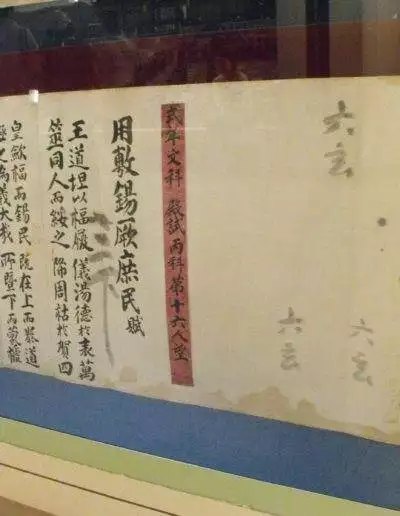 六玄
六玄
六玄
式年文科殿試丙科第十六人望
三下
用敷錫厥庶民賦
王道坦以福履 儀湯德於表萬
筮同人而綏之 降周祜於賀四
皇歛福而錫民 旣在上而恭道
之爲義大哉 所曁下而蒙